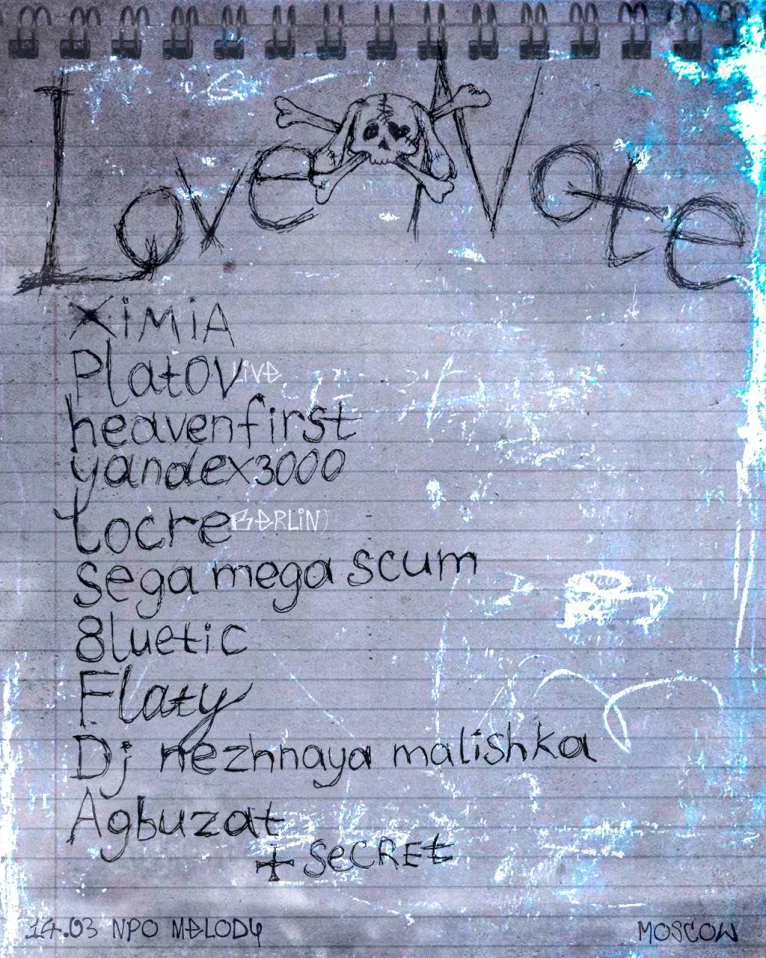 Love Vote
XiMiA
Platov LiVE
heavenfirst
yandex3000
tocre (BERLIN)
sega mega scum
8luetic
Flaty
Dj nezhnaya malishka
Agbuzat
+ SeCREt
14.03 NPO MELODY
MOSCOW